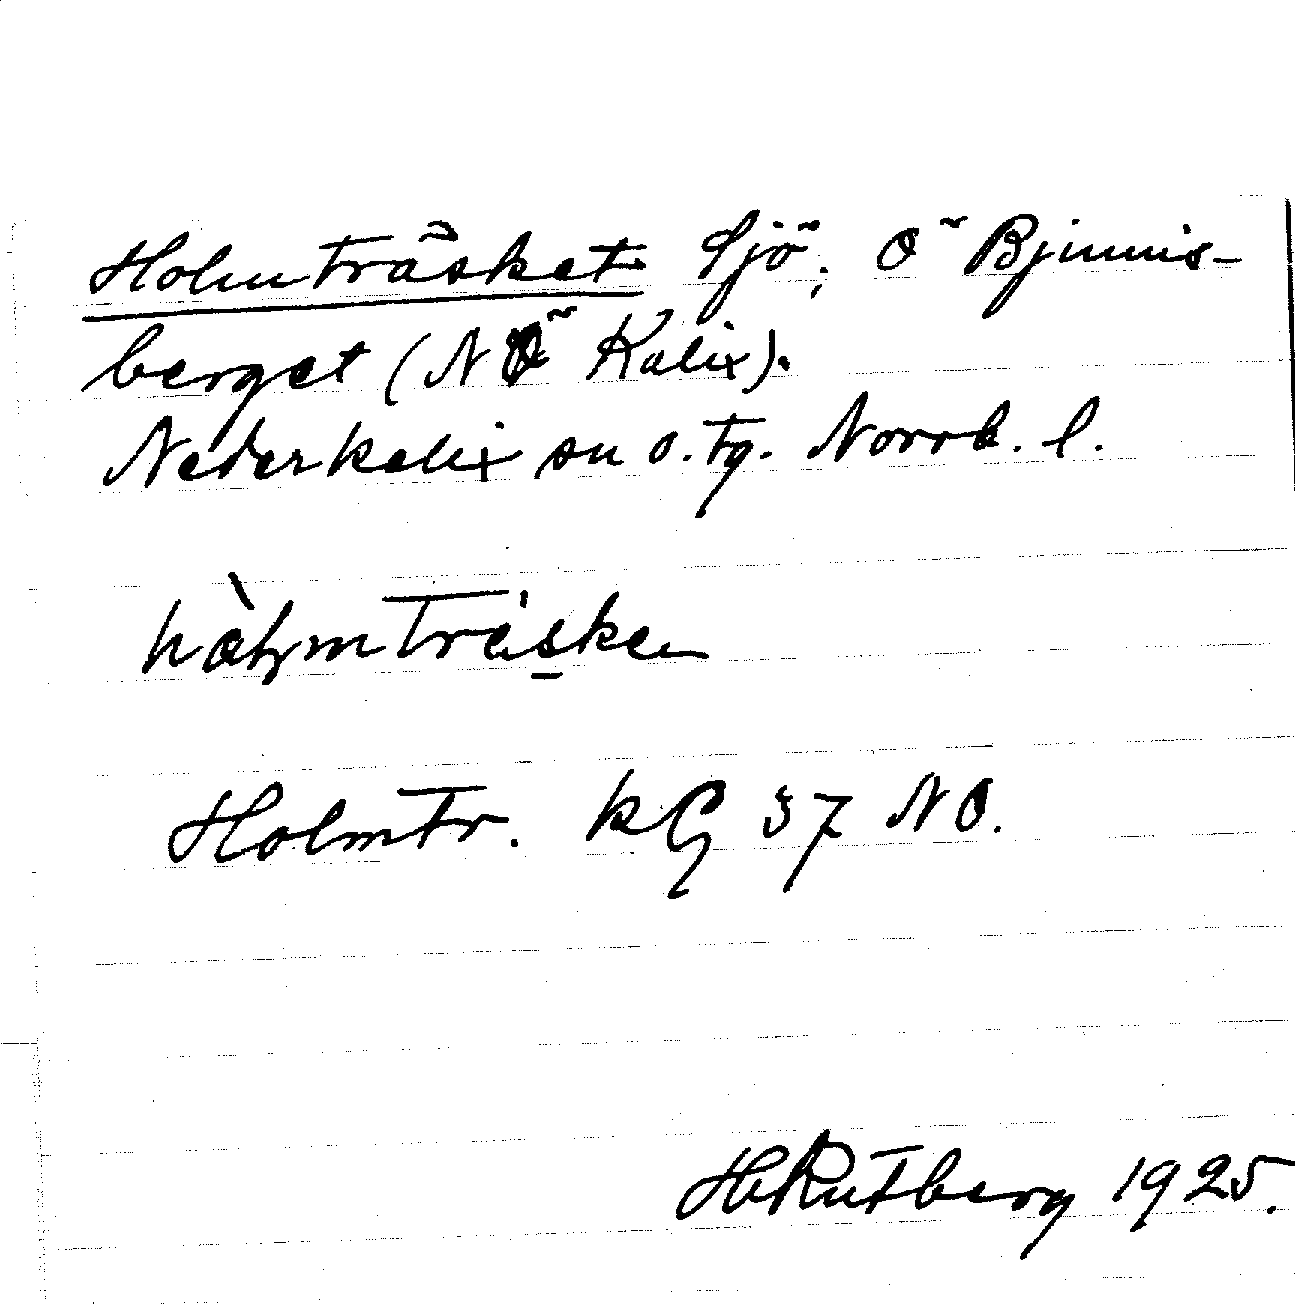 Holmträsket Sjö; Ö Bjumis-
berget (N Ö Kalix).
Nederkalix sn o. tg. Norrb. l.
Holmtr. KG 37 NO.
H Rutberg 1925.